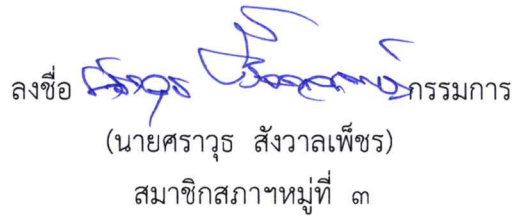 ลงชื่อ ศราวุธ กรรมการ
(นายศราวุธ สังวาลเพ็ชร)
สมาชิกสภาฯหมู่ที่ ๓